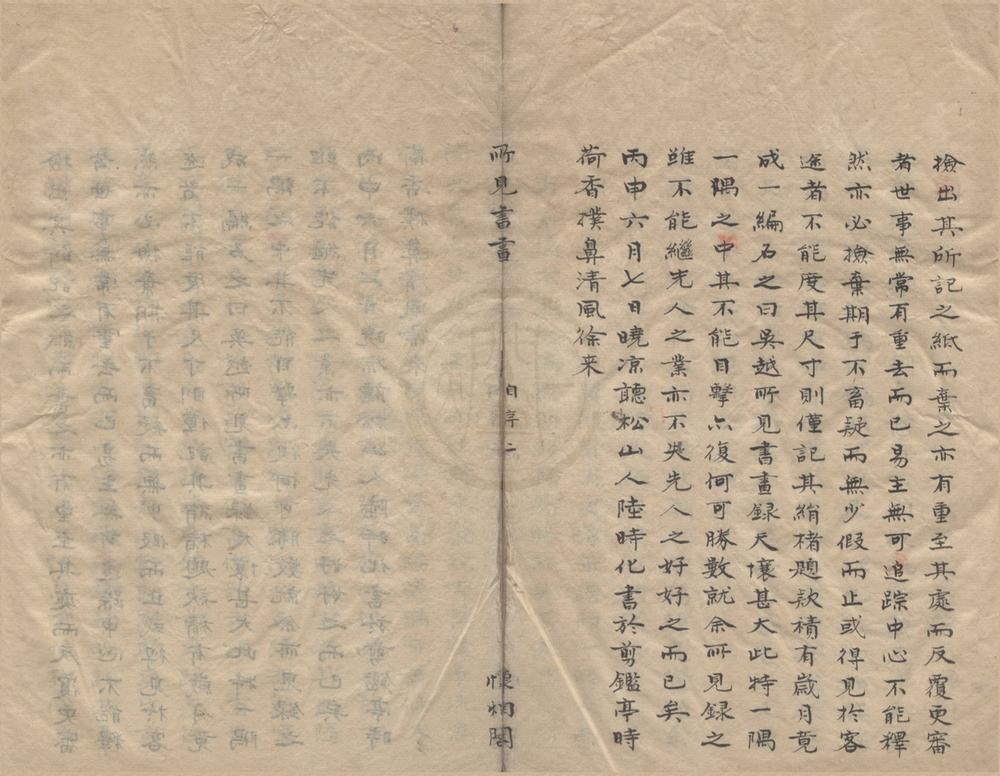 撿出其所記之紙而棄之亦有重至其處而反覆更審
者世事無常有重去而已易主無可追踪中心不能釋
然亦必撿棄期于不畜疑而無少假而止或得見於客
途者不能度其尺寸則僅記其絹楮題欵積有歲月竟
成一編名之曰吳越所見書畫録天壤甚大此特一隅
一隅之中其不能目擊亦復何可勝數就余所見録之
雖不能繼先人之業亦不失先人之好好之而已矣
丙申六月七日曉凉聽松山人陸時化書於剪鑑亭時
荷香撲鼻清風徐来
所見書畫
自序二
懷烟閣